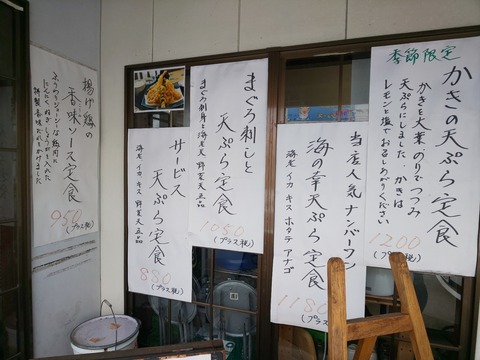 季節限定
かきの天ぷら定食
かきを大葉、のりでつつみ
天ぷらにしました。かきは
レモンと塩でお召しあがりください
1200
(プラス税)
当店人気ナンバーワン
海の幸天ぷら定食
海老 イカ キス ホタテ アナゴ
1180
(プラス
まぐろ刺しと
天ぷら定食
まぐろ刺身と海老天 野菜天五品
1050
(プラス税)
サービス
天ぷら定食
海老 イカ キス 野菜天五品
880
(プラス税)
揚げ鶏の
香味ソース定食
ふっくらジューシーな鶏肉に
にんにく ねぎ しょうがを入れた
特製香味だれをかけました
950
(プラス税)